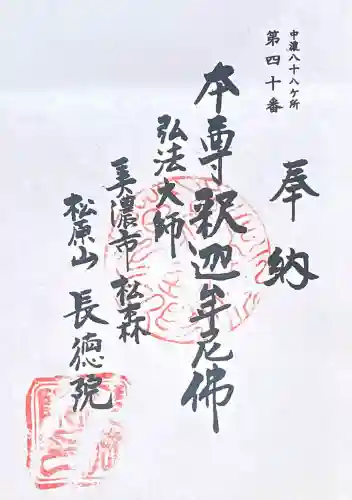 中濃八十八ケ所
第四十番
奉納
本尊釈迦牟尼佛
弘法大師
美濃市松森
松原山 長徳院